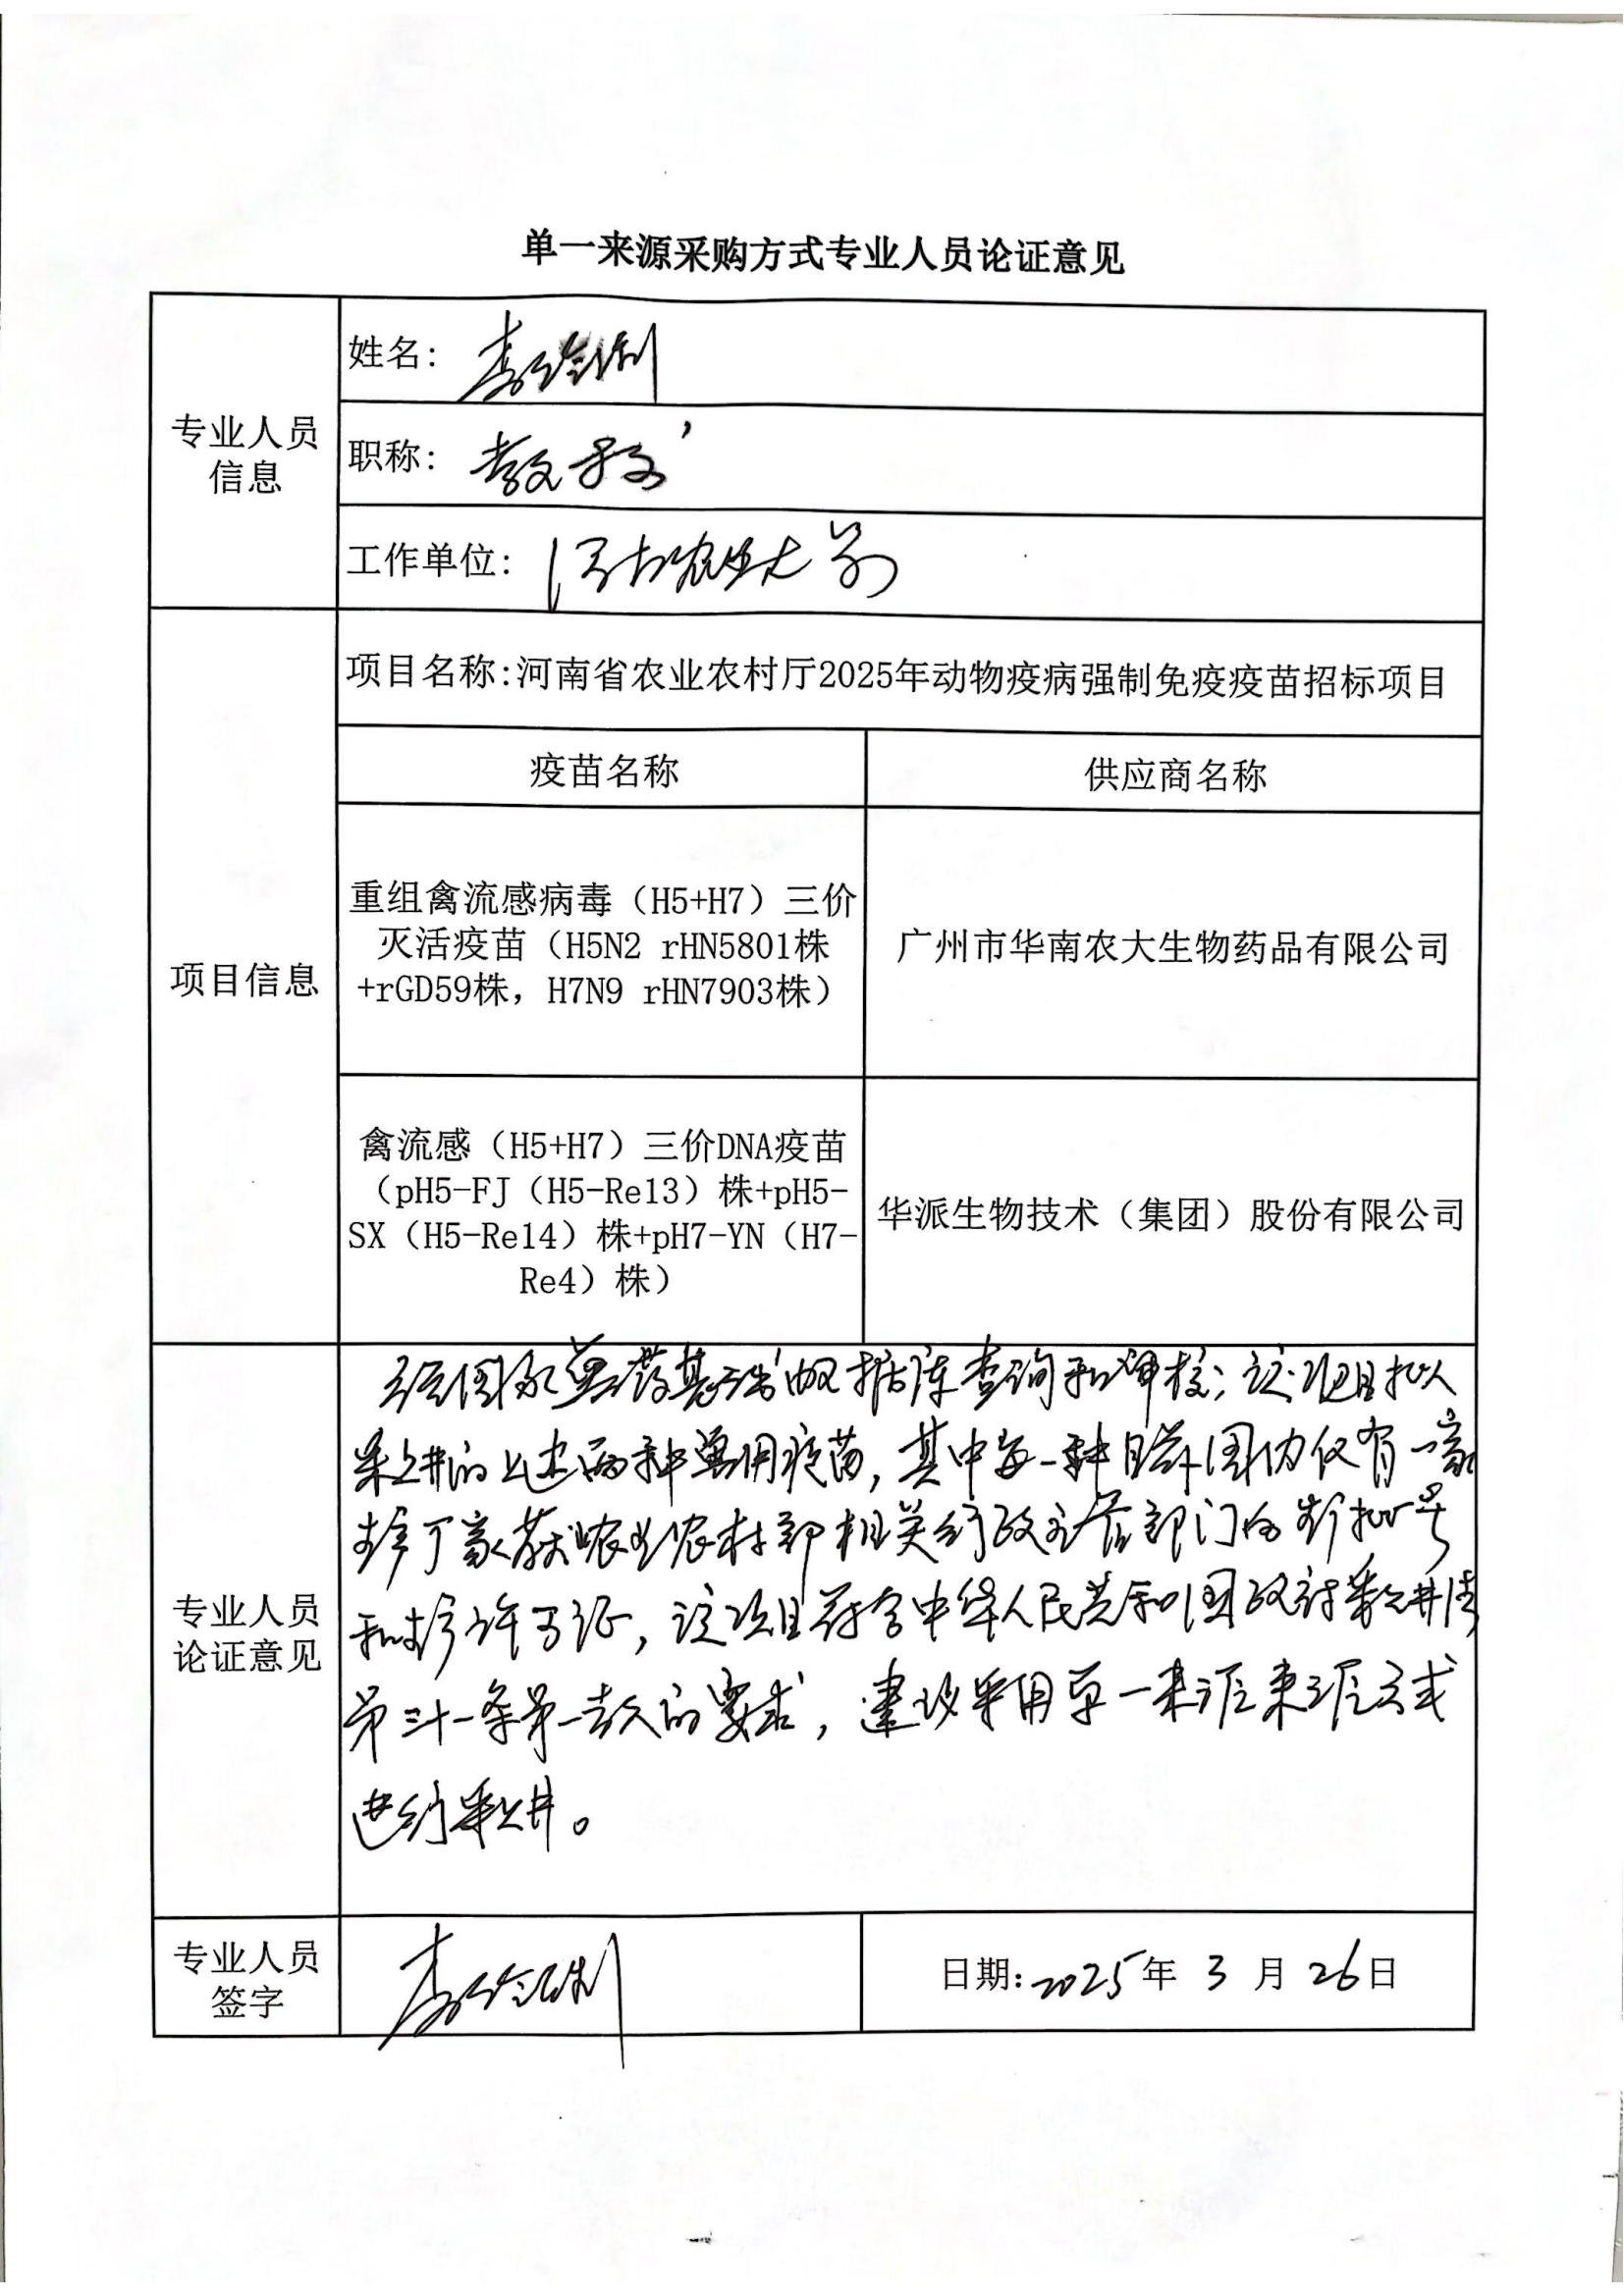 单一来源采购方式专业人员论证意见
专业人员
信息
姓名：
职称：教授
工作单位：河南农业大学
项目信息
项目名称:河南省农业农村厅2025年动物疫病强制免疫疫苗招标项目
疫苗名称
供应商名称
重组禽流感病毒（H5+H7）三价
灭活疫苗（H5N2 rHN5801株
+rGD59株，H7N9 rHN7903株）
广州市华南农大生物药品有限公司
禽流感（H5+H7）三价DNA疫苗
（pH5-FJ（H5-Re13）株+pH5-
SX（H5-Re14）株+pH7-YN（H7-
Re4）株）
华派生物技术（集团）股份有限公司
专业人员
论证意见
经国家兽药基础数据库查询和审核；该项目拟
采购的上述两种兽用疫苗，其中每一种目前国内仅有一家
生产厂家获农业农村部相关行政主管部门的生产批号
和生产许可证，该项目符合中华人民共和国政府采购法
第三十一条第一款的要求，建议采用单一来源来源方式
进行采购。
专业人员
签字
日期:2025年 3 月 26日